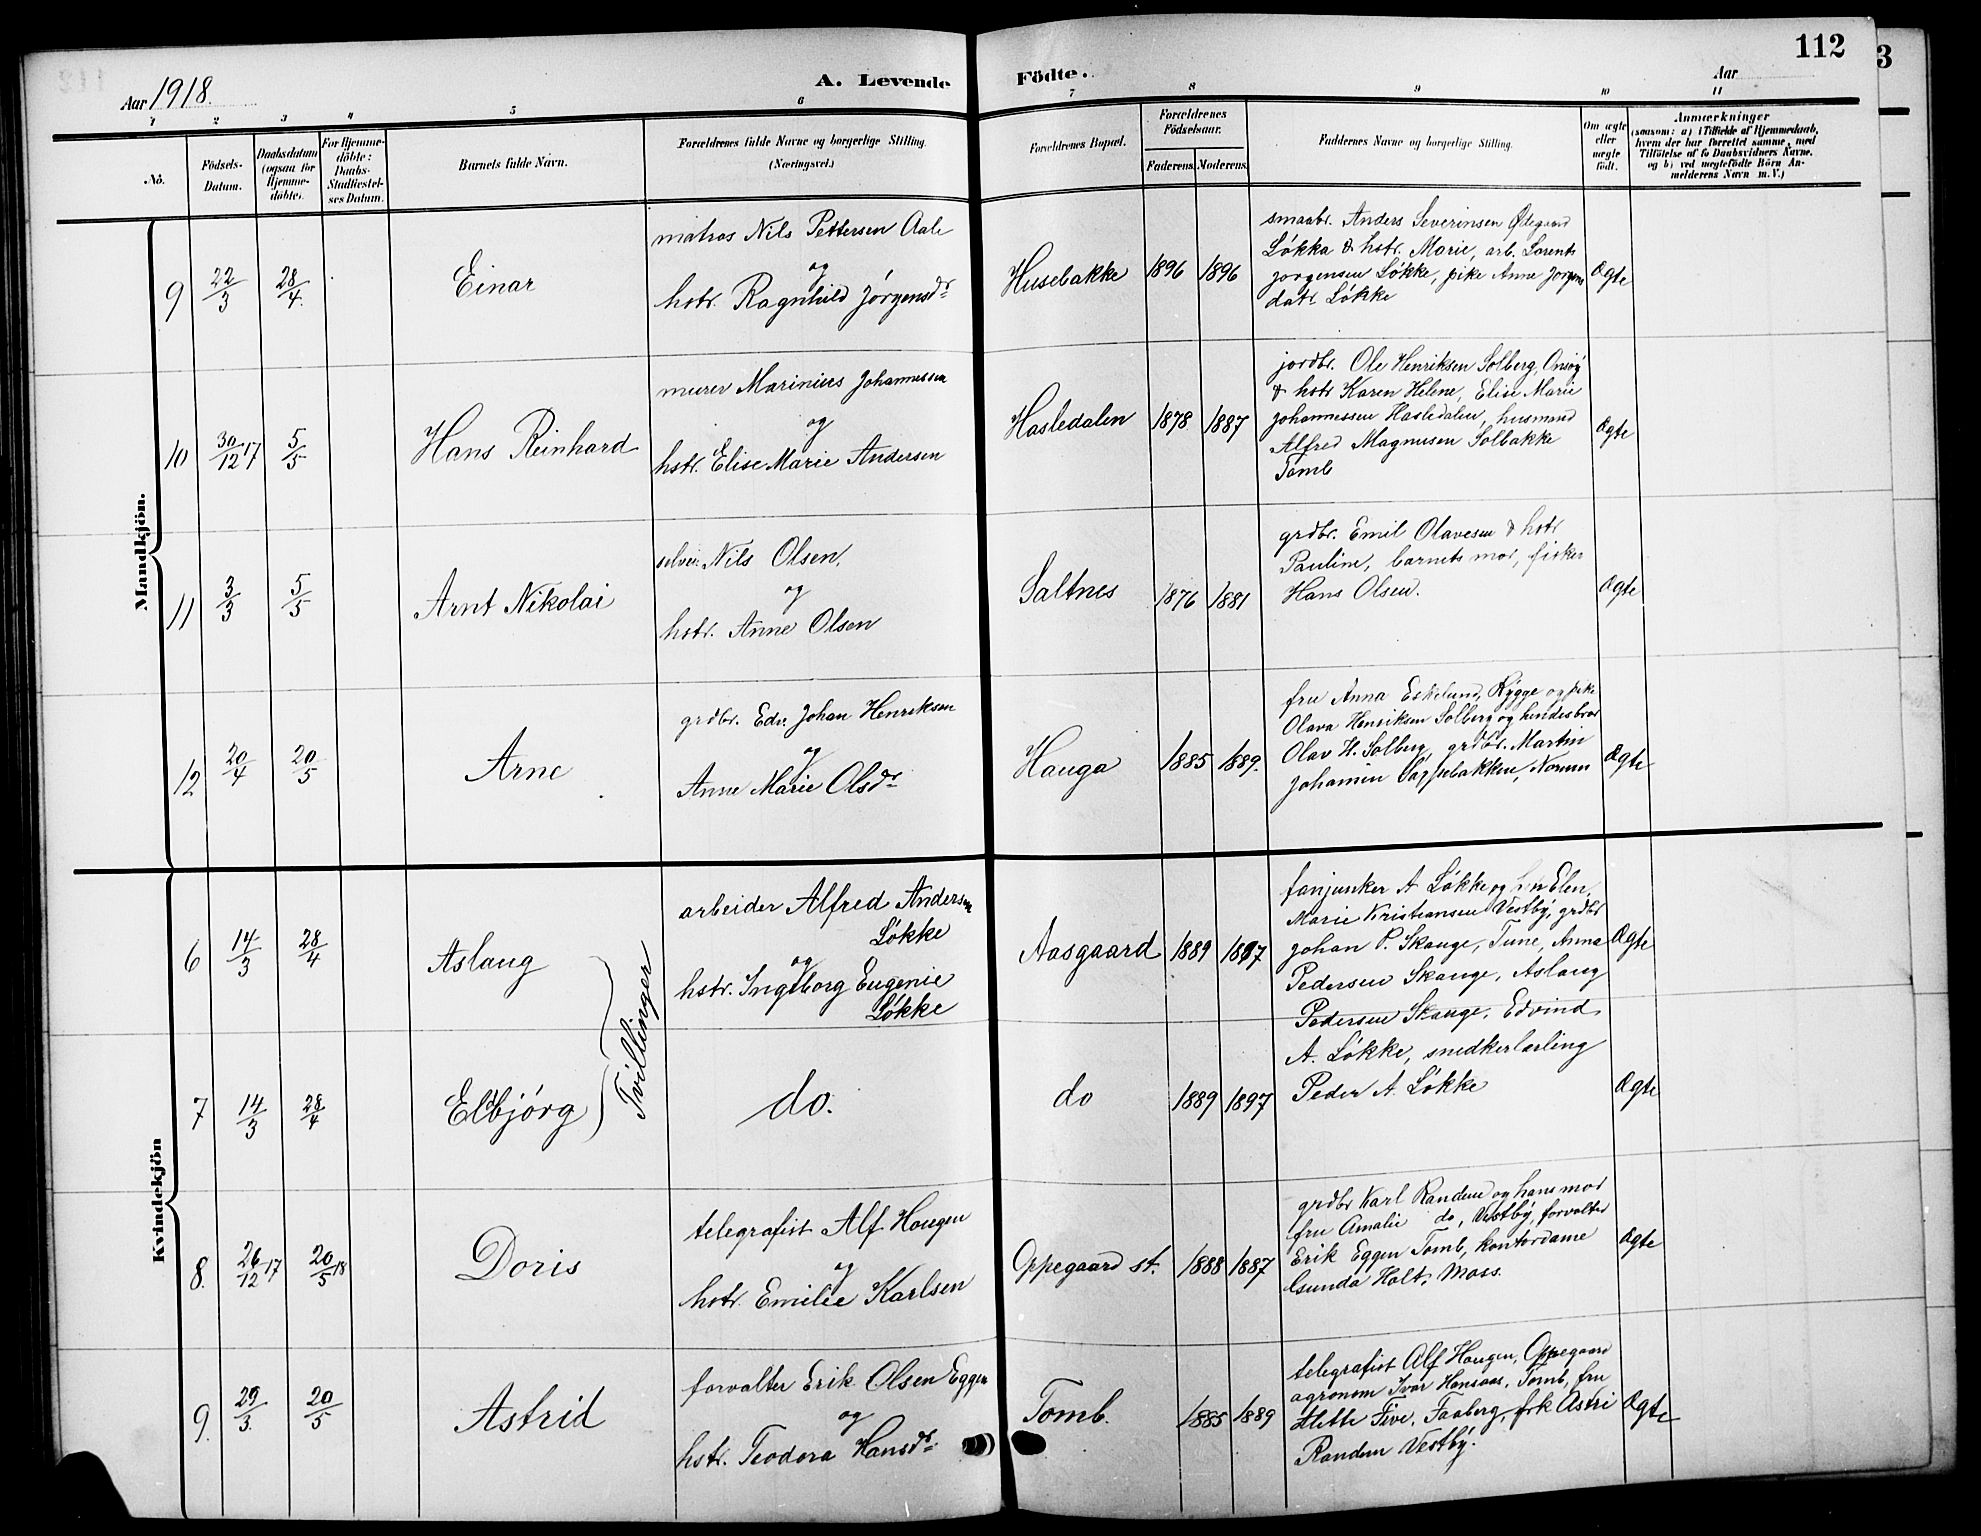 112
3
Aar 1918.
A. Levende Födte.
Aar
1 2 3 4 5 6 7 8 9 10 11
No.
Födsels-
Datum.
Daabsdatum
(ogsaa for
Hjemme-
döbte).
For Hjemme-
döbte:
Daabs-
Stadfæstel-
ses Datum.
Barnets fulde Navn.
Forældrenes fulde Navne og borgerlige Stilling
(Næringsvei.)
Forældrenes Bopæl.
Forældrenes
Födselsaar.
Faderens. Moderens.
Faddernes Navne og borgerlige Stilling.
Om ægte
eller
uægte
födt.
Anmærkninger
(saasom: a) i Tilfælde af Hjemmedaab,
hvem der har forrettet samme, med
Tilföielse af to Daabsvidners Navne,
og b) ved uægtefödte Börn An-
melderens Navn m. V.)
Mandkjön.
9 22/3 28/4. Einar
matros Nils Pettersen Aale
og
hstr. Ragnhild Jørgensdr
Husebakke 1896 1896
smaabr. Anders Severinsen Ødegaard
Løkka & hstr. Marie, arb. Lorents
Jørgensen Løkke, pike Anne Jørgens
datr. Løkke
Ægte
10 30/12 17 5/5 Hans Reinhard
murer Marinius Johannessen
og
hstr. Elise Marie Andersen
Hasledalen 1878 1887
jordbr. Ole Henriksen Solberg, Onsøy
& hstr Karen Helene, Elise Marie
Johannessen Hasledalen, husmand
Alfred Magnusen Solbakke
Tomb
Ægte
11 3/3 5/5 Arnt Nikolai
selvei. Nils Olsen,
og
hstr. Anne Olsen
Saltnes 1876 1881
grdbr. Emil Olavesen & hstr
Pauline, barnets mor, fisker
Hans Olsen.
Ægte
12 20/4 20/5 Arne
grdbr. Edv. Johan Henriksen
og
Anne Marie Olsdr
Hauga 1885 1889.
fru Anna Eskelund, Rygge og pike
Olava Henriksen Solberg og hendes bror
Olav H. Solberg, grdbr. Martin
Johansen Norum
Ægte
Kvindekjön
6 14/3 28/4 Aslaug
Tvillinger
arbeider Alfred Andersen
Løkke
og
hstr. Ingeborg Eugenie
Løkke
Aasgaard 1889 1897
fanjunker A Løkke og Elen
Marie Kristiansen Vestby, grdbr
Johan P. Skauge, Tune, Anna
Pedersen Skauge, Aslaug
Ægte
7 14/3 28/4 Eldbjörg
do.
do 1889 1897
Pedersen Skauge, Edvind
A. Løkke, snedkerlærling
Peder A. Løkke
Ægte
8. 26/12 17 20/5 18 Doris
telegrafist Alf Hougen
og
hstr. Emilie Karlsen
Oppegaard st. 1888 1887
grdbr Karl Randem og hans mor
fru Amalie do, Vestby, forvalter
Erik Eggen Tomb, kontordame
Gunda Holt, Moss.
Ægte
9. 29/3. 20/5 Astrid
forvalter Erik Olsen Eggen
og
hstr. Teodora Hansdr.
Tomb. 1885 1889
telegrafist Alf Hougen, Oppegaard
agronom Ivar Hansaas, Tomb, fru
Mette Five, Faaberg, frk Astri
Randem Vestby.
Ægte